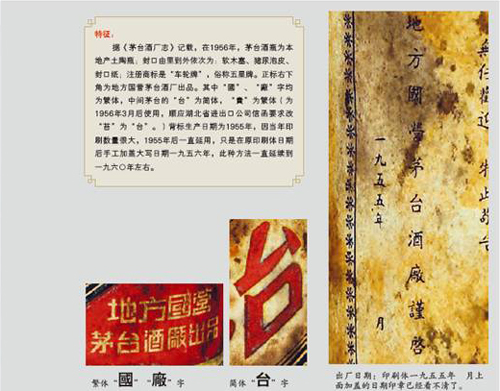 特征：
据《茅台酒厂志》记载，在1956年，茅台酒瓶为本
地产土陶瓶；封口由里到外依次为：软木塞、猪尿泡皮、
封口纸；注册商标是“车轮牌”，俗称五星牌。正标右下
角为地方国营茅台酒厂出品。其中“國”、“廠”字均
为繁体，中间茅台的“台”为简体，“貴”为繁体（为
1956年3月后使用，顺应湖北省进出口公司信函要求改
“苔”为“台”。）背标生产日期为1955年，因当年印
刷数量很大，1955年后一直延用，只是在原印刷体日期
后手工加蓋大写日期一九五六年，此种方法一直延续到
一九六〇年左右。
地方國营
茅台酒廠出品
繁体“國”“廠”字
台
简体“台”字
無任歡迎 特此敬告
地方國營茅台酒廠謹啓
一九五五年 月
出厂日期：印刷体一九五五年 月上
面加盖的日期印章已经看不清了。